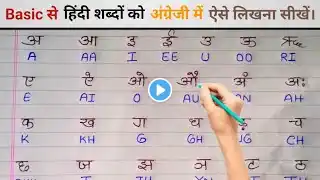 Basic से हिंदी शब्दों को अंग्रेजी में ऐसे लिखना सीखें।
अ आ इ ई उ ऊ ऋ
A AA I EE U OO RI
ए ऐ ओ औ अं अः
E AI O AU AN AH
क ख ग घ ङ च
K KH G GH NG CH
छ ज झ ञ ट ठ